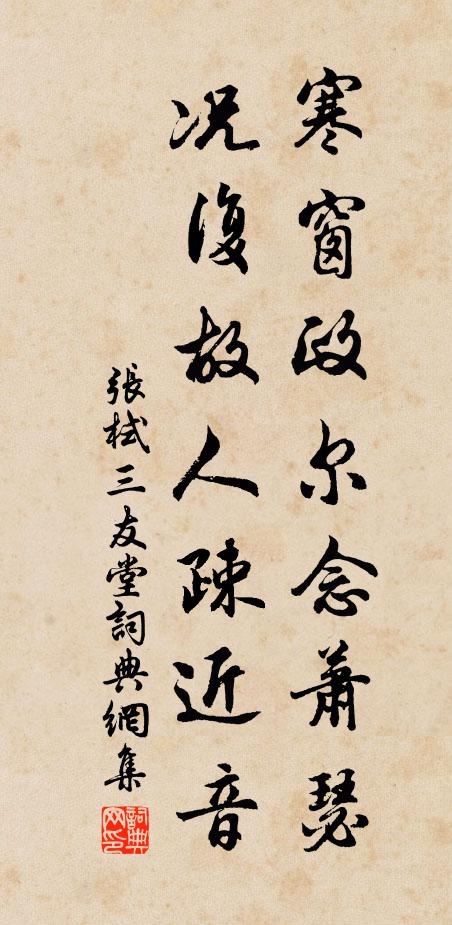 寒窗政尔念萧瑟
况復故人疎近音
張栻三友堂詞典網集
詞典网印